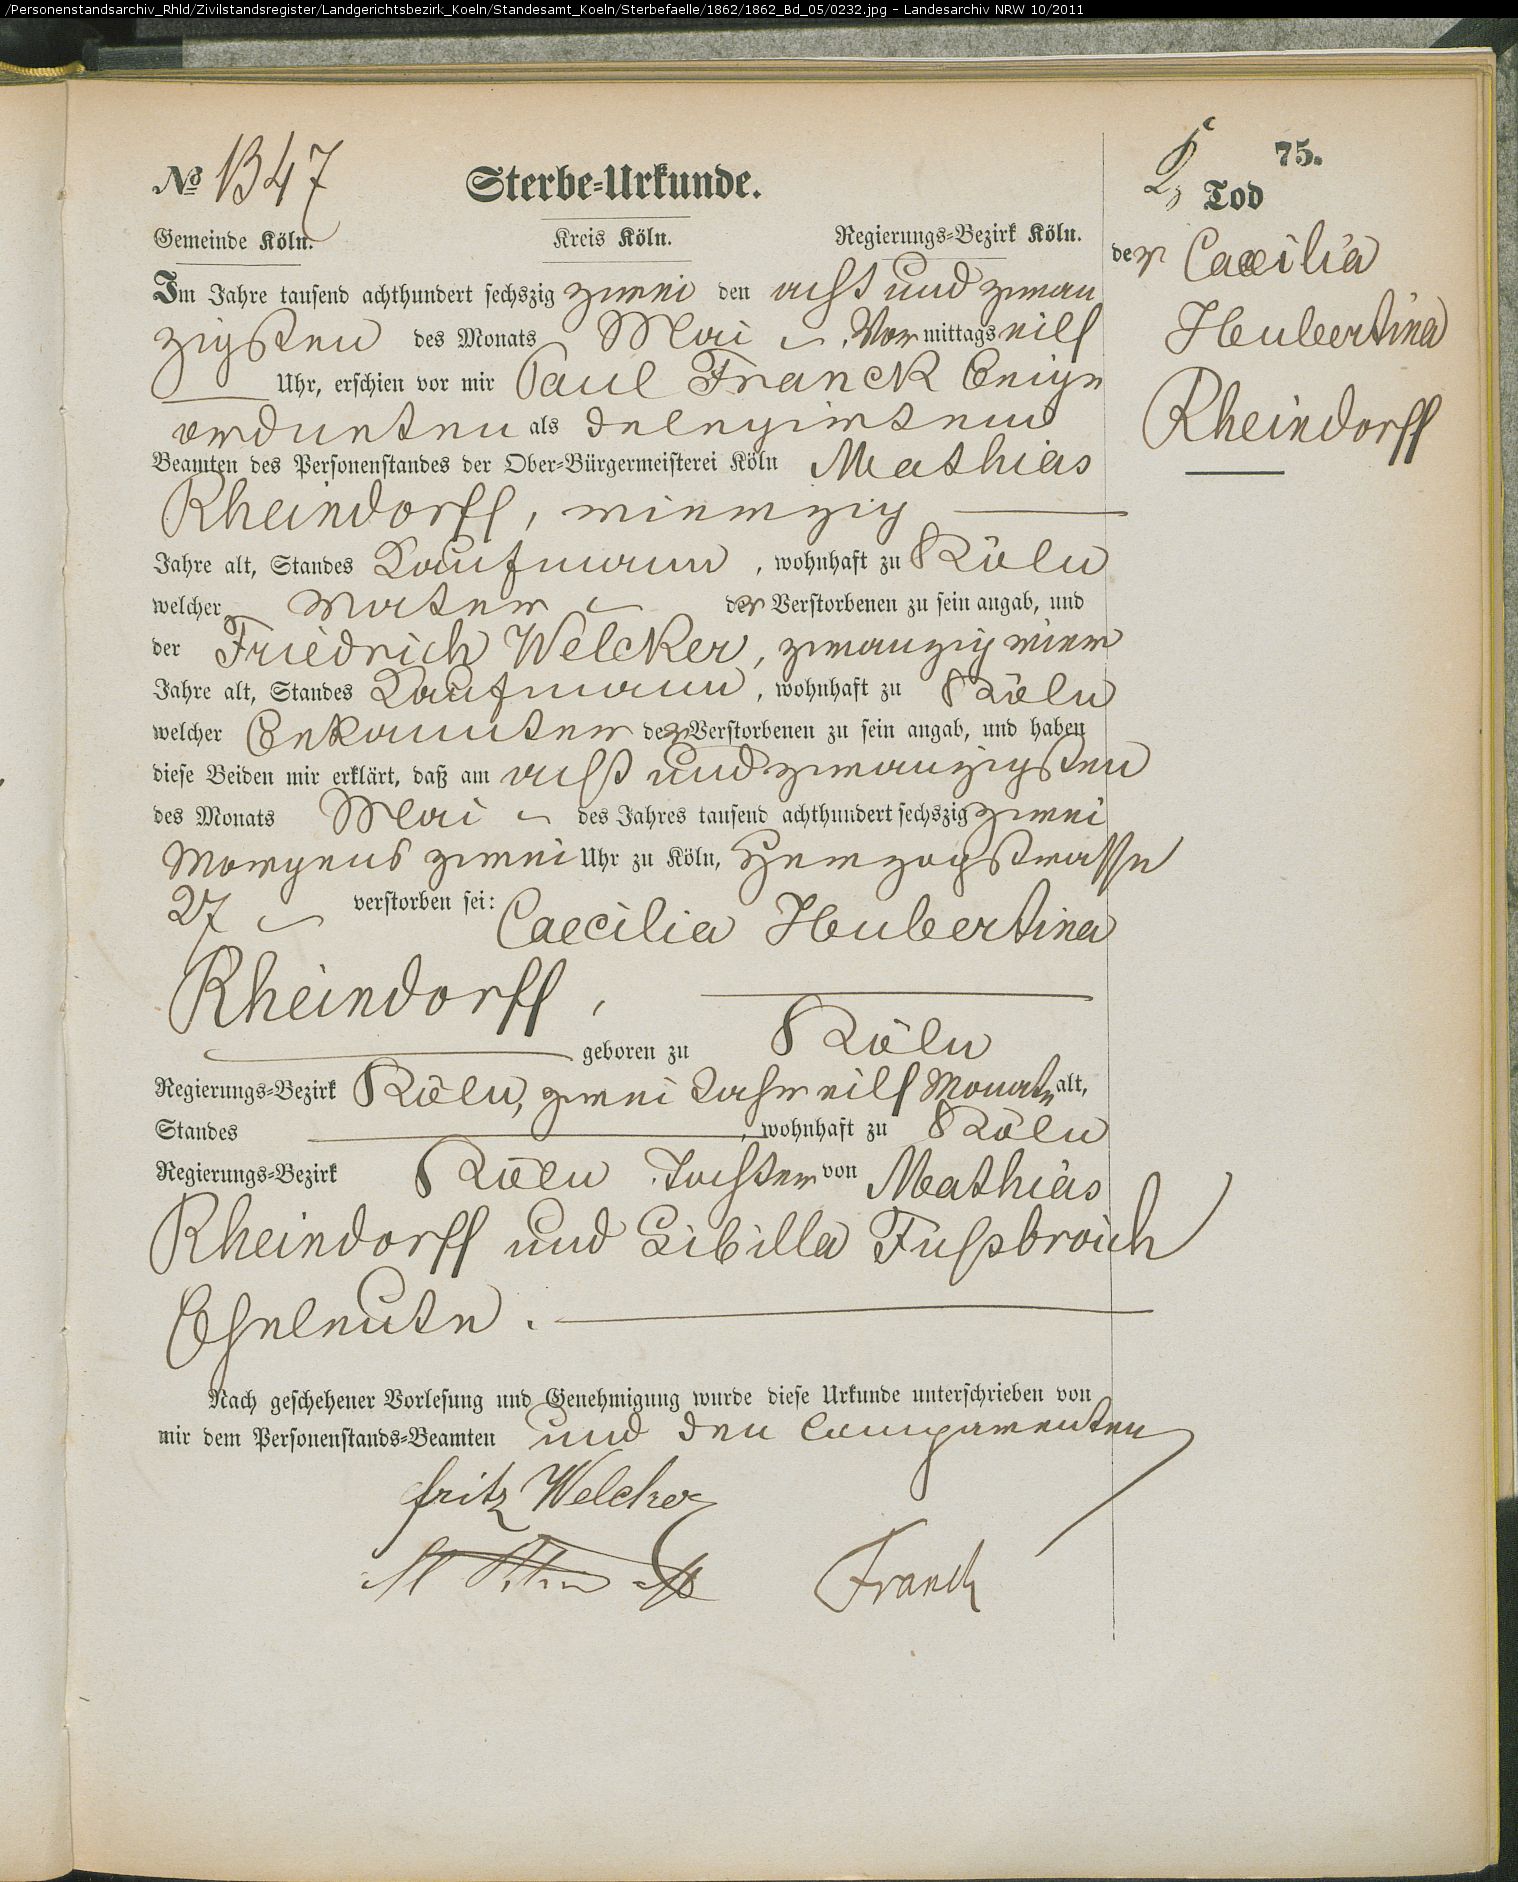 /Personenstandsarchiv_Rhld/Zivilstandsregister/Landgerichtsbezirk_Koeln/Standesamt_Koeln/Sterbefaelle/1862/1862_Bd_05/0232.jpg - Landesarchiv NRW 10/2011
75.
№ 1347
Sterbe-Urkunde.
Tod
Gemeinde Köln. Kreis Köln. Regierungs-Bezirk Köln.
der Caecilia
Hubertina
Rheindorff
Im Jahre tausend achthundert sechszig zwei den acht und zwan
zigsten des Monats Mai Vor mittags eilf
Uhr, erschien vor mir Paul Franck Beige
ordneten als delegirtem
Beamten des Personenstandes der Ober-Bürgermeisterei Köln Mathias
Rheindorff, vierzig
Jahre alt, Standes Kaufmann, wohnhaft zu Köln
welcher Vater der Verstorbenen zu sein angab, und
der Friedrich Welcker, zwanzig vier
Jahre alt, Standes Kaufmann, wohnhaft zu Köln
welcher Bekannter der Verstorbenen zu sein angab, und haben
diese Beiden mir erklärt, daß am acht und zwanzigsten
des Monats Mai des Jahres tausend achthundert sechszig zwei
Morgens zwei Uhr zu Köln, Herzogstrasse
27 verstorben sei: Caecilia Hubertina
Rheindorff,
geboren zu Köln
Regierungs-Bezirk Köln, zwei Jahr eilf Monate alt,
Standes , wohnhaft zu Köln
Regierungs-Bezirk Köln Tochter von Mathias
Rheindorff und Sibilla Fußbroich
Eheleute.
Nach geschehener Vorlesung und Genehmigung wurde diese Urkunde unterschrieben von
mir dem Personenstands-Beamten und den Comparenten
fritz Welcker
Franck